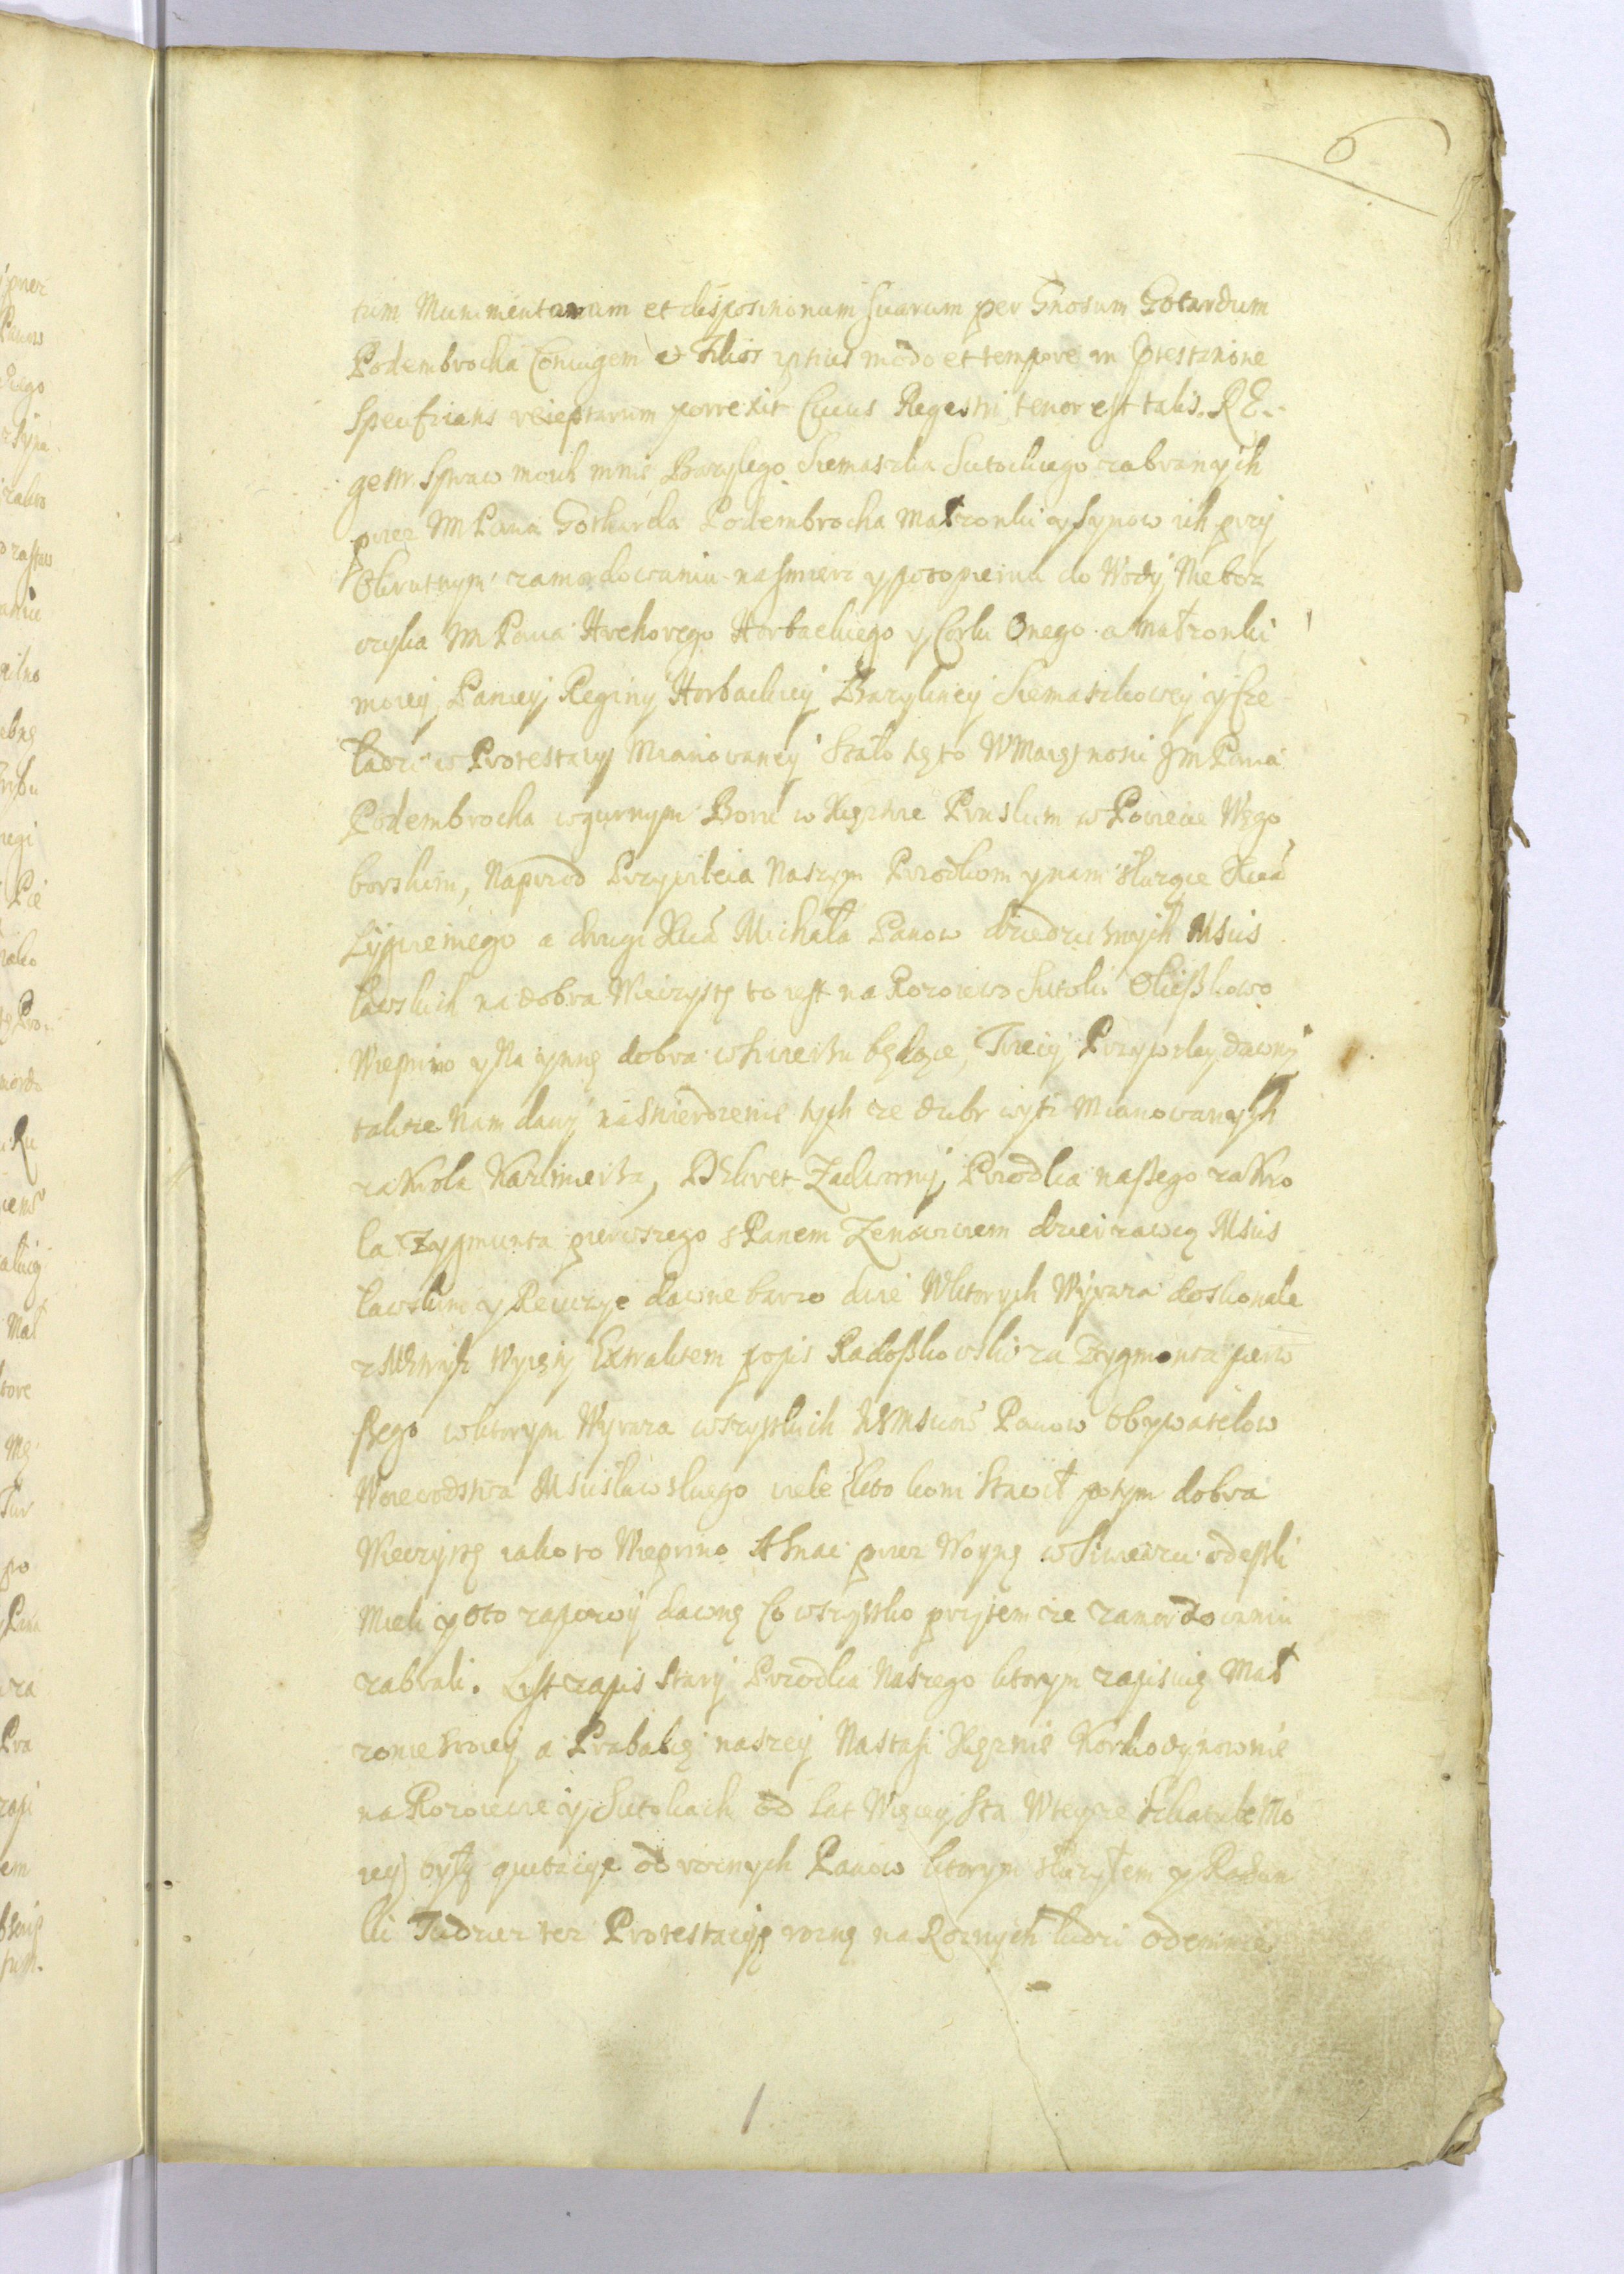 6
tum Munimentorum et dispositionum suarum per Gnosum Gotardum
Podembrocka Coniugem et Filios ipsius modo et tempore in Protestatione
Specificans receptarum porrexit Cuius Regestri tenor est talis. RE-
gestr Spraw moich mnie Bazylego Siemaszka Sutockiego zabranych
przez JM Pana Gotharda Podembrocka Małzonki y Synow ich przy
Okrutnym zamordowaniu na smierc y potopieniu do Wody Niebosz
czyka JM Pana Hrehorego Horbackiego y Corki Onego a małzonki
moiey Paniey Reginy Horbackiey Bazyliney Siemaszkowey y Cze
ladzi w Protestacyi Mianowaney Stało się to W Maiętnosci JM Pana
Podembrocka w gurnym Boru w Xięztwie Pruskim w Powiecie Węgo
borskim, Naprzod Przywileia Naszym Przodkom y nam słuzące Xcia
Lyngweniego a drugi Xcia Michała Panow dziedzicznych Mscis
ławskich na dobra Wieczyste to iest na Rozoiewo Sutoki Olieszkowo
Wiepryno y Na ynne dobra w Siewierzu będące, Trzeci Przywiley dawny
takze Nam dany na stwierdzenie tych ze dobr wysz Mianowanych
za Krola Kazimierza, Dekret Zadworny Przodka naszego za Kro
la Zygmunta pierwszego s Panem Zenowiem dzierzawcą Mscis
ławskim y Rewizye dawne barzo dwie W ktorych Wyraza doskonale
z Metryk Wyięty Extraktem popis Radoszkowski za Zygmonta pierw
szego w ktorym Wyraza wszystkich Panow Obywatelow
Woiewodstwa Mscisławskiego wiele kto koni stawił potym dobra
Wieczyste iako to Wiepryno przez Woynę w Siwierzu odeszli
Mieli y oto zapozwy dawne Co wszystko przy tem ze zamordowaniu
zabrali. Lyst zapis Stary Przodka Naszego ktorym zapisuię Mał
zonie swoiey a Prababie naszey Nastasi Xięznie Korkodynownie
na Rozoiewie y Sutokach od Lat Więcey Sta W teyze Szkatule Mo
iey były quitacye od roznych Panow ktorym słuzyłem y Rachun
ki Tudziez tez Protestacye rozne na Roznych ludzi odemnie